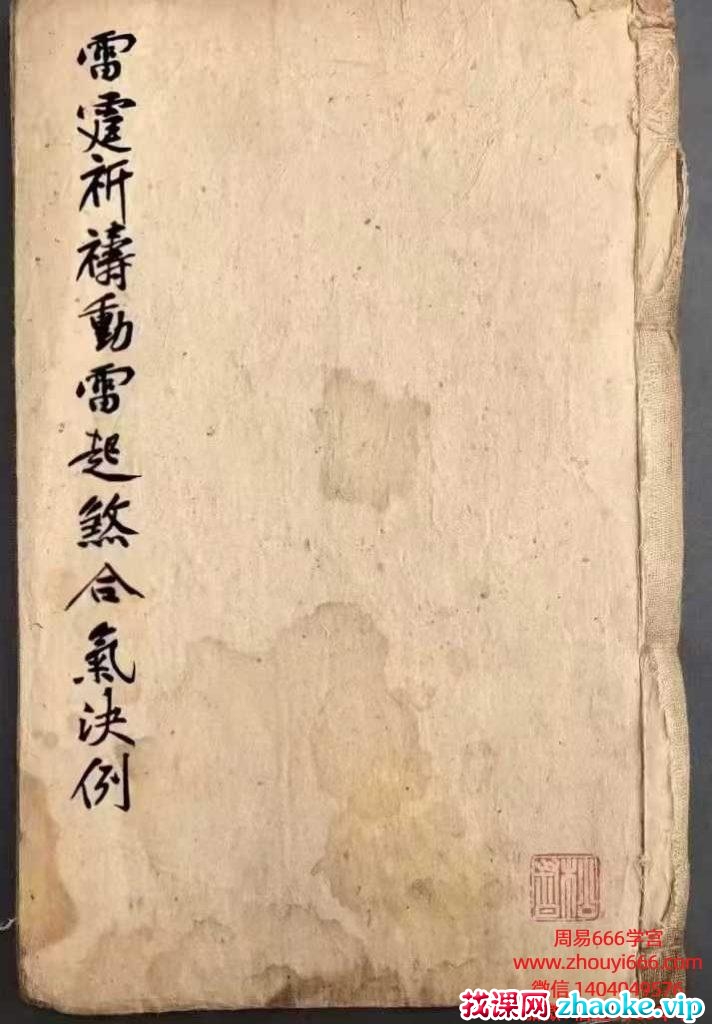 雷霆祈禱動雷起煞合氣決例
周易666学宫
www.zhouyi666.com
微信 1404049526
找课网zhaoke.vip